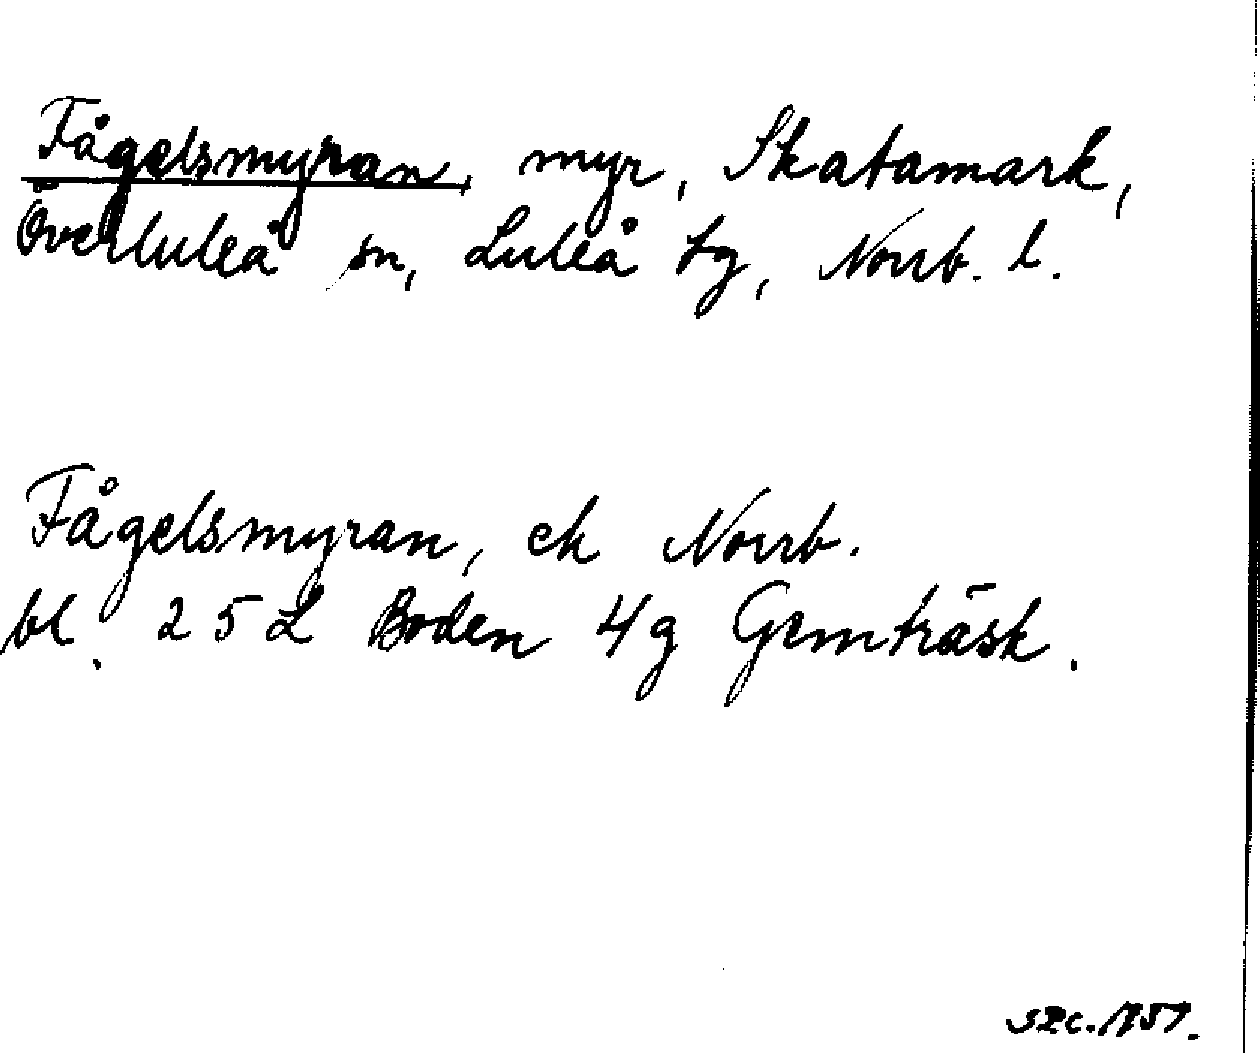 Fågelsmyran, myr, Skatamark,
Överluleå sn, Luleå tg, Norrb. l.
Fågelsmyran, ek Norrb.
bl. 25L Boden 4g Gemträsk.